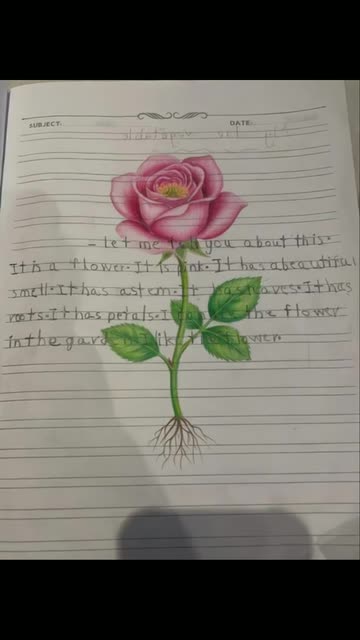 SUBJECT:
DATE:
- Let me tell you about this.
It is a flower. It is pink. It has a beautiful
smell. It has a stem. It has leaves. It has
roots. It has petals. I the flower
in the garden. I like the flower.